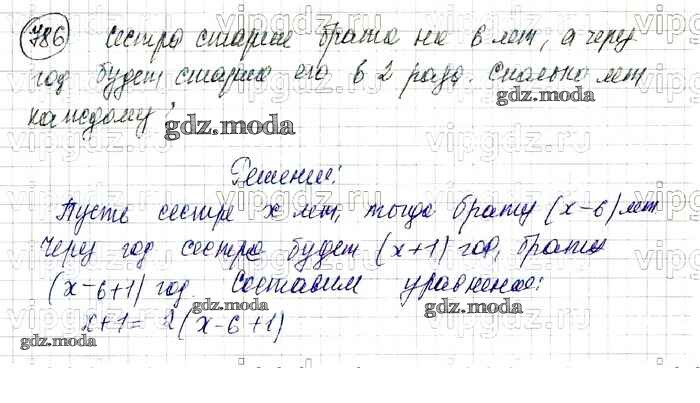 786 Сестра старше брата на 6 лет, а через
год будет старше его в 2 раза. Сколько лет
каждому?
gdz.moda
gdz.moda
Решение:
Пусть сестре x лет, тогда брату (x-6) лет
Через год сестре будет (x+1) год, брату
(x-6+1) год. Составим уравнение:
gdz.moda
gdz.moda
x+1= 2(x-6+1)
gdz.moda
vipgdz.ru